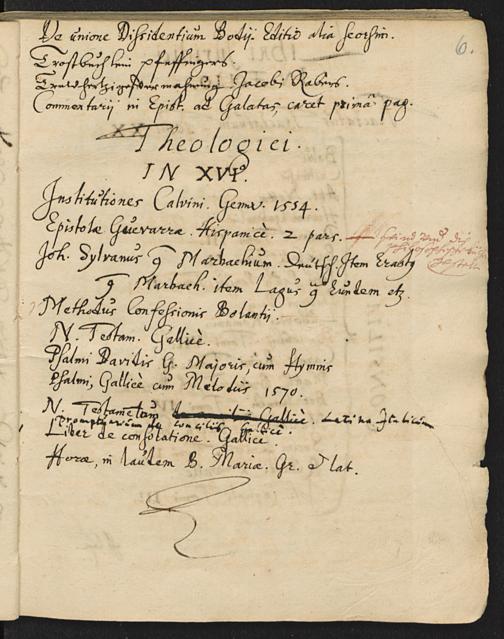 6.
De unione Dissidentium Bodij. Editio alia seorsim.
Trostbuchlein pfeffingers.
Jacobj Rabus.
Commentarij in Epist. ad Galatas, caret primâ pag.
Theologici.
IN XVI°.
Institutiones Calvini. Genev. 1554.
Epistolæ Guevarræ. Hispanicè. 2 pars.
Joh. Sylvanus Marbachium. Deutsch. Item Erasty
Marbach. item Lagus Eundem etz
Methodus Confessionis Bolantij.
N. Testam. Gallicè.
Psalmi Davidis G. Majoris, cum Hymnis
Psalmi, Gallicè cum Melodiis 1570.
N. Testamentum Gallicè. Latino Italicum
Promptuarium de conciliis Gallicè.
Liber de consolatione. Gallicè.
Horæ, in laudem B. Mariæ. Gr. et lat.